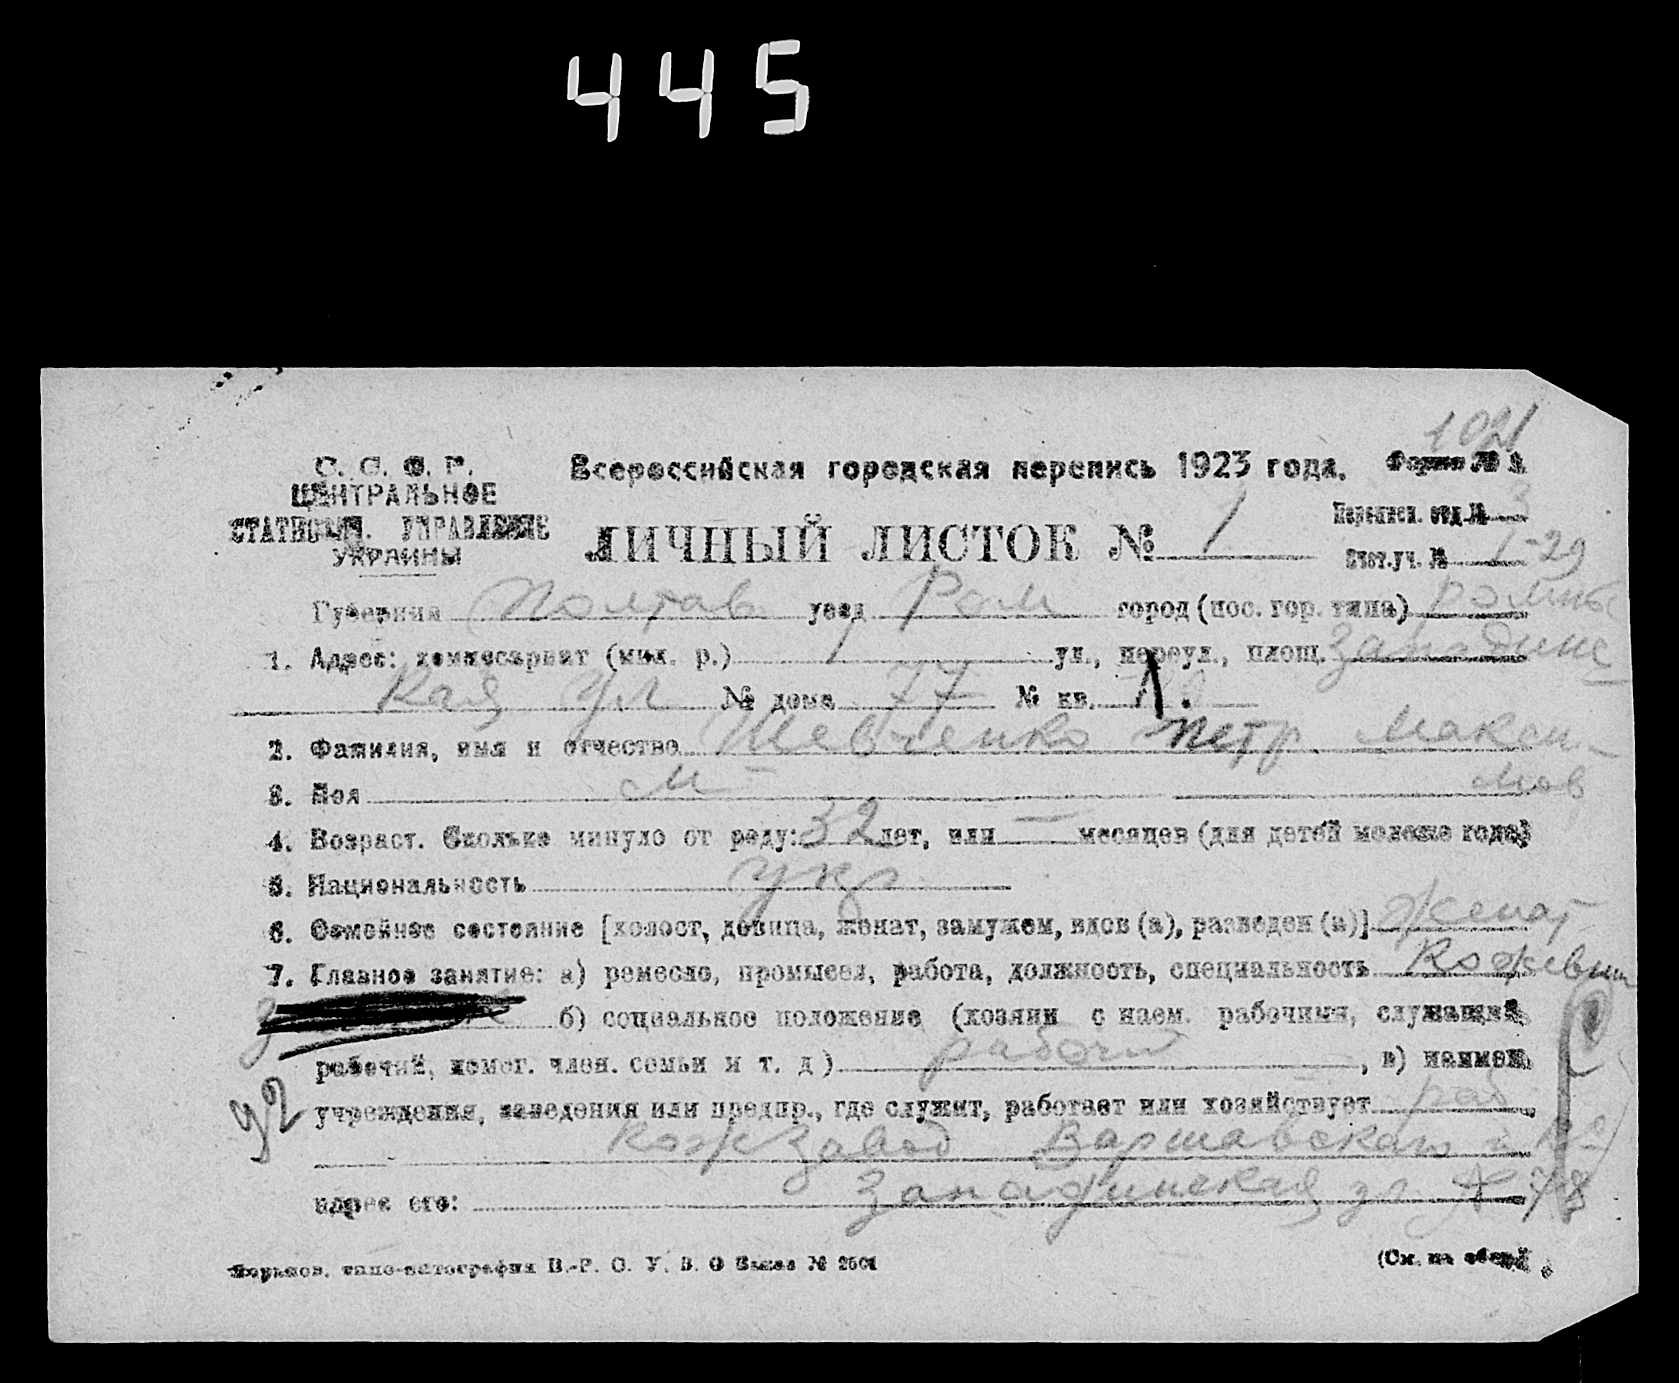 445
1091
С. С. Ф. Р.
ЦЕНТРАЛЬНОЕ
СТАТИСТИЧ. УПРАВЛЕНИЕ
УКРАИНЫ
Всероссийская городская перепись 1923 года. Форма № 1.
ЛИЧНЫЙ ЛИСТОК № 1
Переписн. отд. № 3
Счет. уч. № 1-29
Губерния Полтав уезд Ром город (пос. гор. типа) Ромны
1. Адрес: комиссариат (мил. р.) 1 ул., переул., площ. Западинс
кая ул № дома 77 № кв. 1
2. Фамилия, имя и отчество Шевченко Петр Макси-
мов
3. Пол м
4. Возраст. Сколько минуло от роду: 32 лет, или — месяцев (для детей моложе года)
5. Национальность укр
6. Семейное состояние [холост, девица, женат, замужем, вдов (а), разведен (а)] женат
7. Главное занятие: а) ремесло, промысел, работа, должность, специальность Кожевни
б) социальное положение (хозяин с наем. рабочими, служащий,
рабочий, помог. член. семьи и т. д) рабочий, в) наимен.
учреждения, заведения или предпр., где служит, работает или хозяйствует раб
92
Кожзавод Варшавского и Ко
адрес его: Западинская ул № 78
Харьков, типо-литография В.-Р. О. У. В. О Заказ № 2501
(См. на обор.)